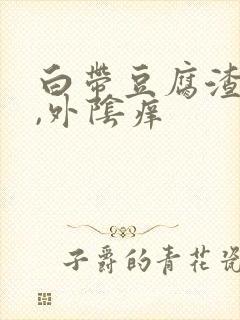 白帶豆腐渣
,外陰痒
子爵的青花瓷